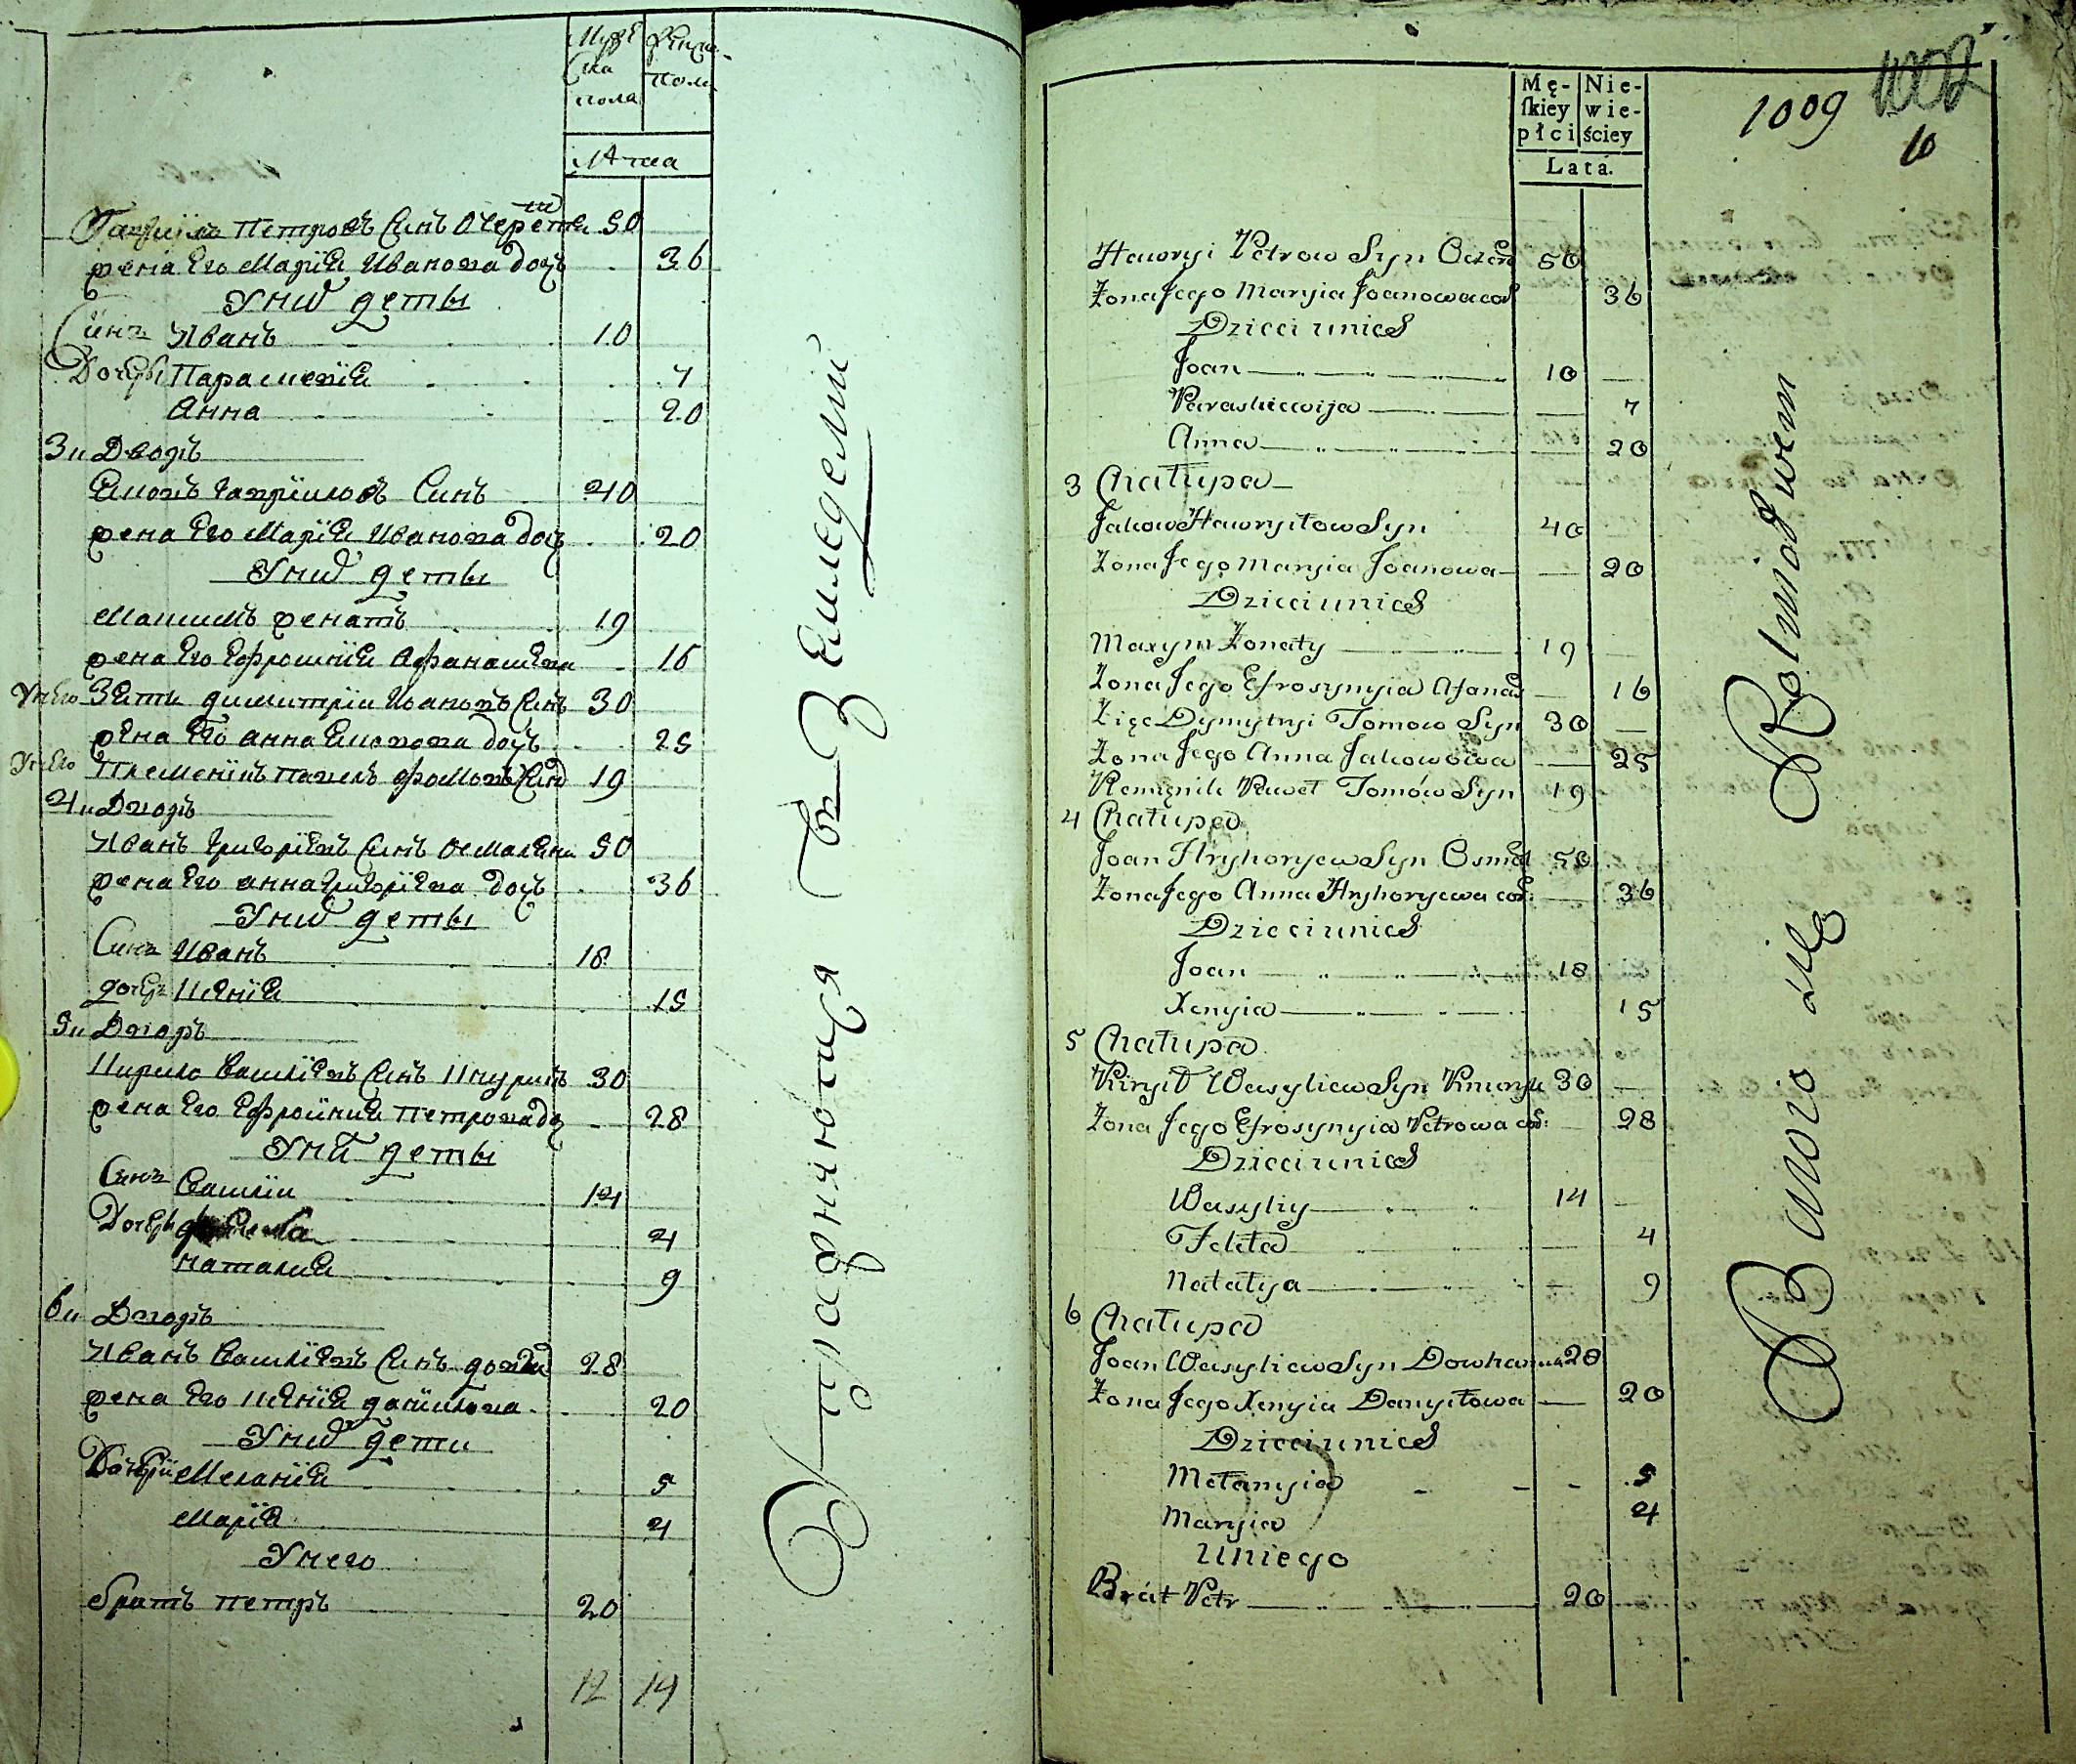 Мужеска пола
Женска пола
Лѣта
Гавриилъ Петровъ Синъ Очеретн 50
жена Его Марія Иванова доч 36
У нихъ дети
Синъ Иванъ 10
Дочери Параскевія 7
Анна 20
3 й Дворъ
Яковъ Гавриiловъ Синъ 40
жена Его Марія Иванова доч 20
У нихъ дети
Максимъ женатъ 19
жена Его Ефросинія Афанасіева 16
У него Зять Димитрій Ѳомовъ Синъ 30
жена Его Анна Яковова доч 25
У него Племенікъ Павелъ Фомовъ Син 19
4 й Дворъ
Иванъ Григоріевъ Синъ Осмал 50
жена Его Анна Григоріева доч 36
У нихъ дети
Синъ Иванъ 18
дочь Ксенія 15
5 й Дворъ
Кирило Василіевъ Синъ Кнуръ 30
жена Его Ефросинія Петрова до 28
У них дети
Синъ Василій 14
Дочери Фекла 4
Наталия 9
6 й Дворъ
Иванъ Василіевъ Синъ довга 28
жена Его Ксенія данилова 20
У нихъ дети
Дочери Меланія 5
Марія 4
У него
братъ Петръ 20
12 14
Упражняются въ Земледеліи
Mę-skiey płci
Nie-wie-ściey
Lata.
1009
10
Hawryi Petrow Syn Oczer 50
Żona Jego Maryia Joanowa cor 36
Dzieci unich
Joan 10
Paraskiewija 7
Anna 20
3 Chałupa
Jakow Hawryłow Syn 40
Żona Jego Maryia Joanowa 20
Dzieci unich
Maxym Żonaty 19
Żona Jego Efrosynyia Afanas 16
Zięc Dymytryi Tomow Syn 30
Żona Jego Anna Jakowowa 25
Plemięnik Paweł Tomów Syn 19
4 Chałupa
Joan Hryhoryew Syn Osmał 50
Żona Jego Anna Hryhoryewa cor: 36
Dzieci unich
Joan 18
Xenyia 15
5 Chałupa
Kirył Wasyliew Syn Knury 30
Żona Jego Efrosynyia Petrowa cor: 28
Dzieci unich
Wasyliy 14
Tekła 4
Natalya 9
6 Chałupa
Joan Wasyliew Syn Dowha 28
Żona Jego Xenyia Danyłowa 20
Dzieci unich
Mełanyia 5
Maryia 4
U niego
Brát Petr 20
Bawio się Rolniodtwem